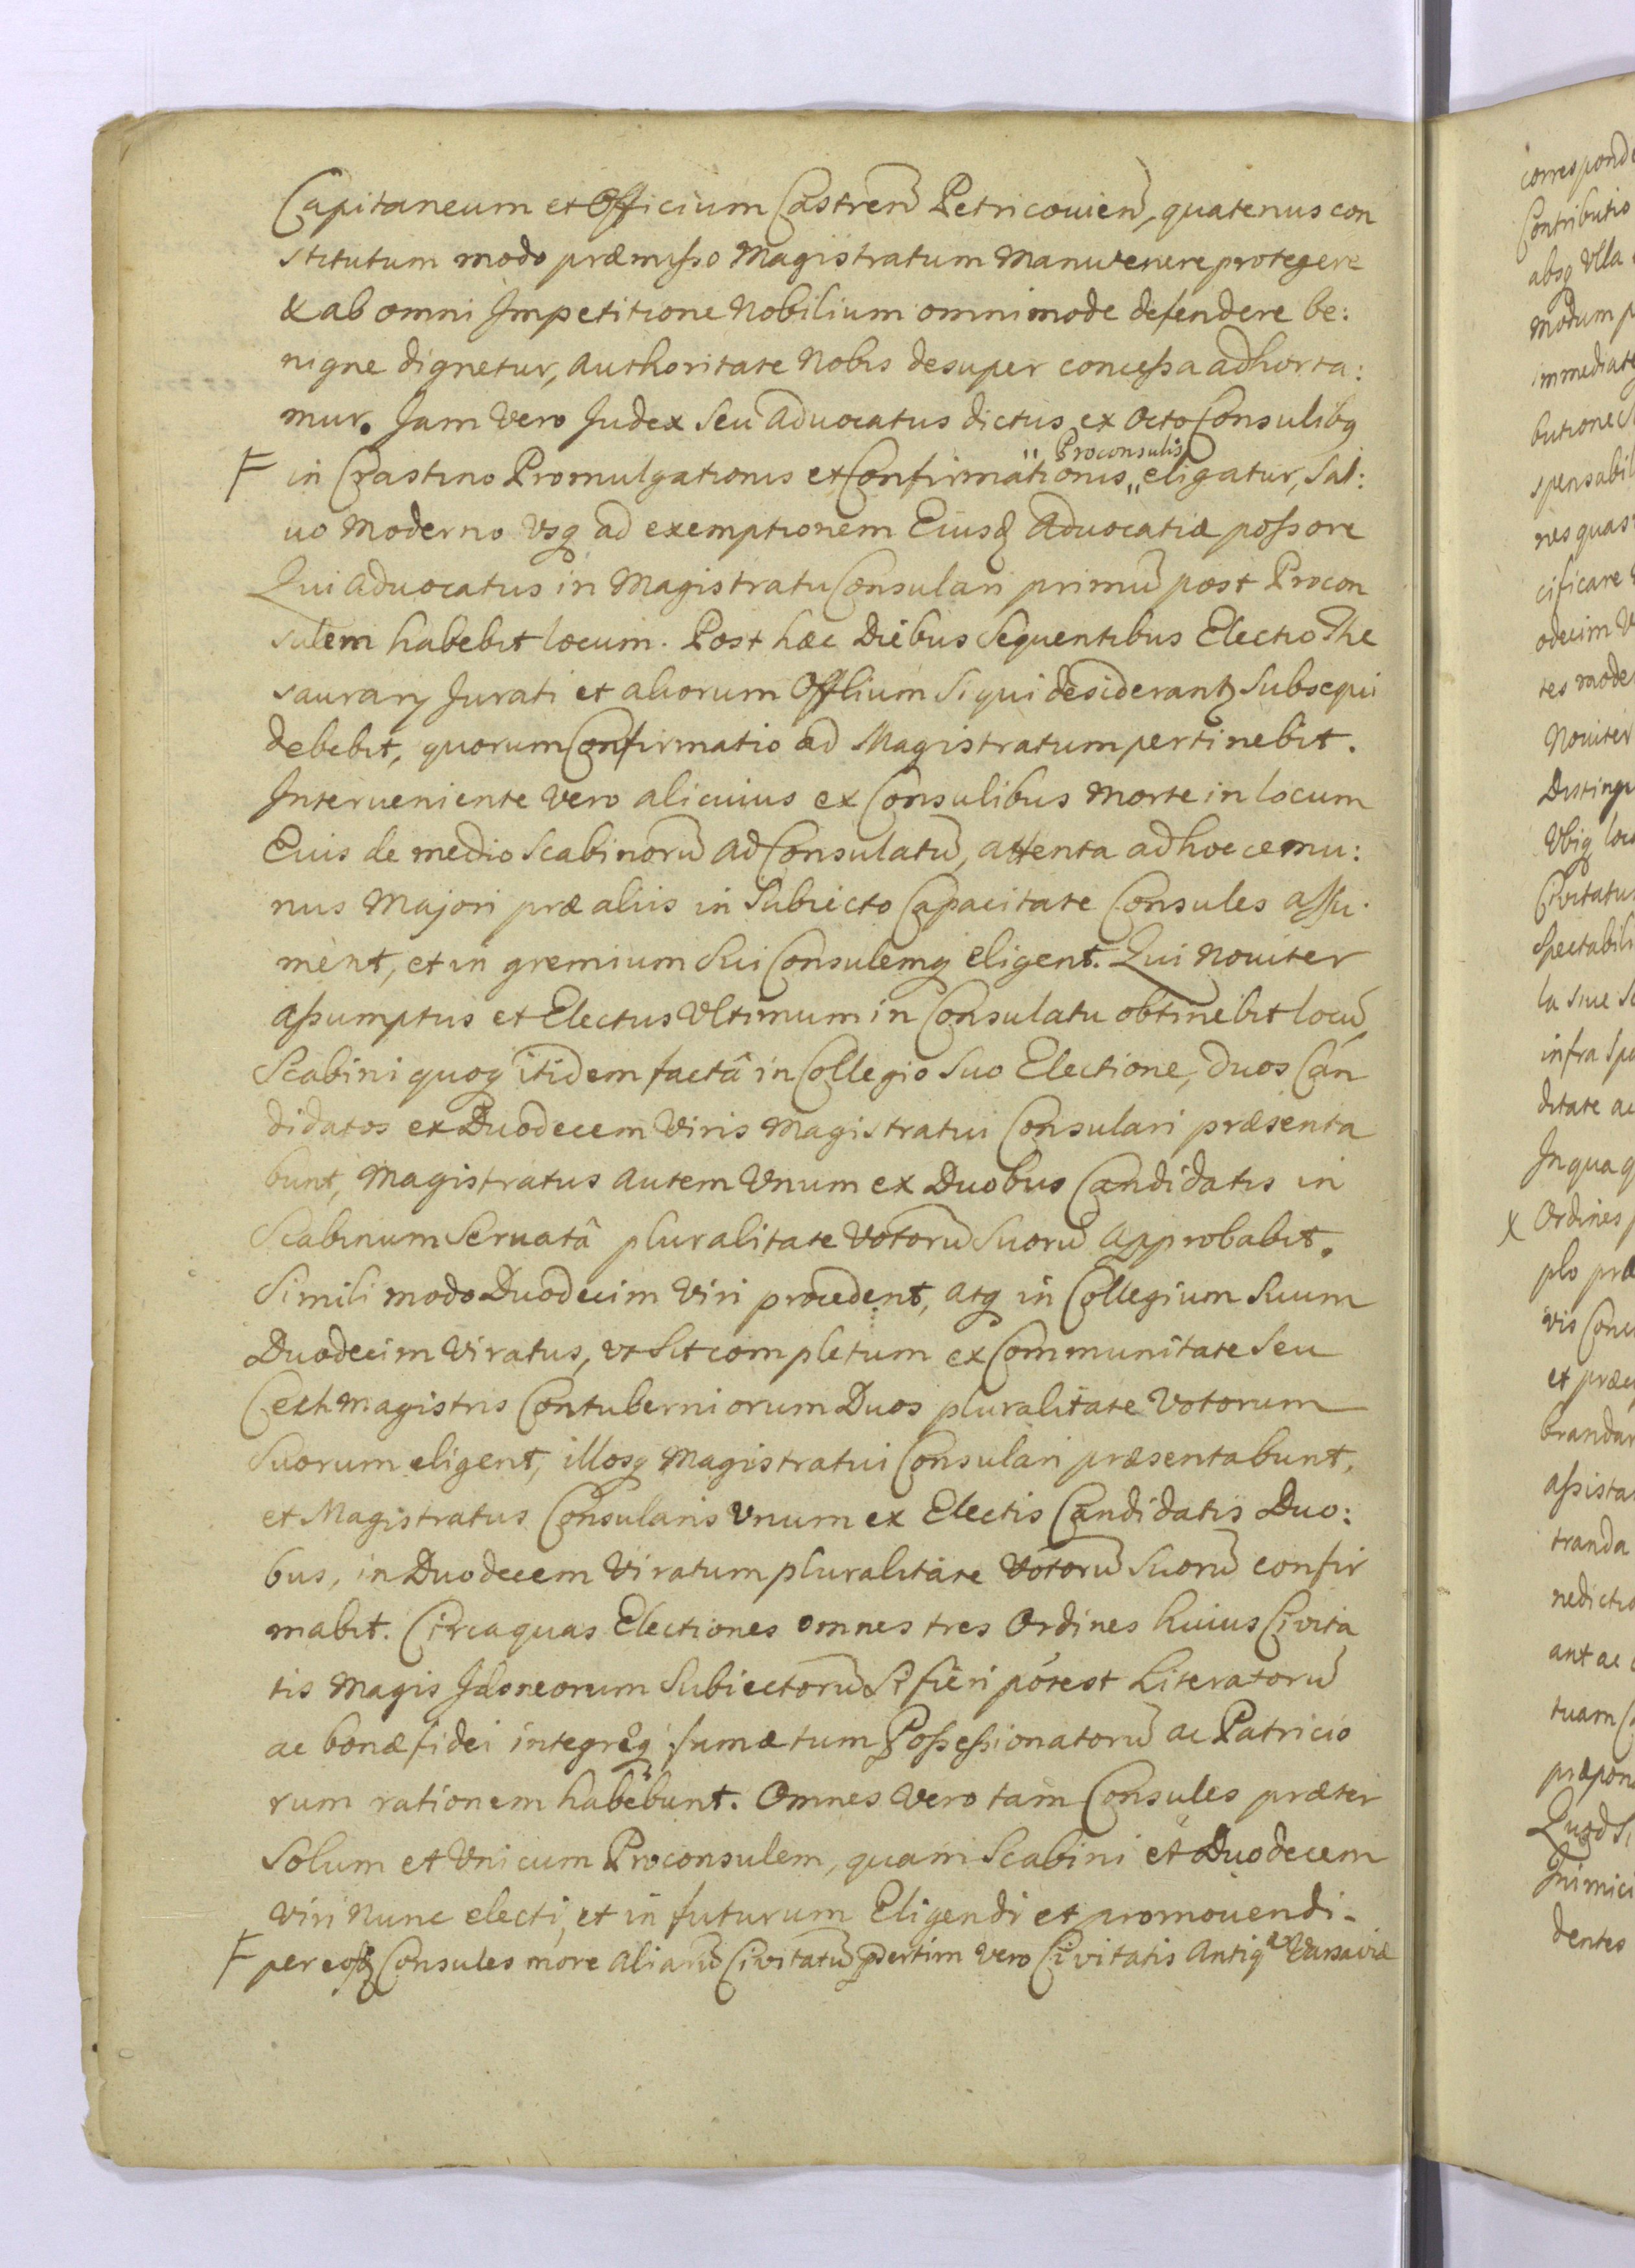 Capitaneum et Officium Castren̄ Petricouien̄, quatenus con
stitutum modo præmisso Magistratum Manutenere protegere
& ab omni Impetitione Nobilium omnimode defendere be:
nigne dignetur, Authoritate Nobis desuper concessa adhorta:
mur. Jam Vero Judex Seu Aduocatus dictus ex Octo Consulibq
" Proconsulis
F in Crastino Promulgationis et Confirmationis „ eligatur, Sal:
uo Moderno Vsq ad exemptionem Eiusd Aduocatiæ possore
Qui Aduocatus in Magistratu Consulari primū post Procon
sulem habebit locum. Post hæc Diebus Sequentibus Electio The
saurarÿ Jurati et aliorum Offlium Si qui desiderantꝫ Subsequi
debebit, quorum Confirmatio ad Magistratum pertinebit.
Interueniente Vero alicuius ex Consulibus Morte in locum
Eius de medio Scabinorū Ad Consulatū, attenta ad hocce mu:
nus Majori præ aliis in Subiecto Capacitate Consules assu:
ment, et in gremium Sui Consulemq eligent. Qui Nouiter
assumptus et Electus Vltimum in Consulatu obtinebit locū
Scabini quoq itidem factâ in Collegio Suo Electione, duos Can
didatos ex Duodecem Viris Magistratui Consulari præsenta
bunt, Magistratus autem Vnum ex Duobus Candidatis in
Scabinum Seruatâ pluralitate Votorū Suorū Approbabit.
Simili modo Duodecim Viri procedent, atq in Collegium Suum
Duodecim Viratus, vt Sit completum ex Communitate Seu
Cechmagistris Contuberniorum Duos pluralitate Votorum
Suorum eligent, illosq Magistratui Consulari præsentabunt,
et Magistratus Consularis Vnum ex Electis Candidatis Duo:
bus, in Duodecem Viratum pluralitate Votorū Suorū confir
mabit. Circa quas Electiones omnes tres Ordines huius Civita
tis Magis Idoneorum Subiectorū Si fieri potest Literatorū
ac bonæ fidei integræq famæ tum Possessionatorū ac Patricio
rum rationem habebunt. Omnes Vero tam Consules præter
Solum et Vnicum Proconsulem, quam Scabini et Duodecem
Viri Nunc electi, et in futurum Eligendi et promouendi-
F per eosd Consules more aliarū Civitatū psertim Vero Civitatis Antiqæ Varsaviæ
absq Vlla
immediate
cificare
Nouiter
Civitatis
infra
ditate
In qua q
X Ordines
plo præ
vis
tranda
ant ac
tuam
Quod Si
dentes